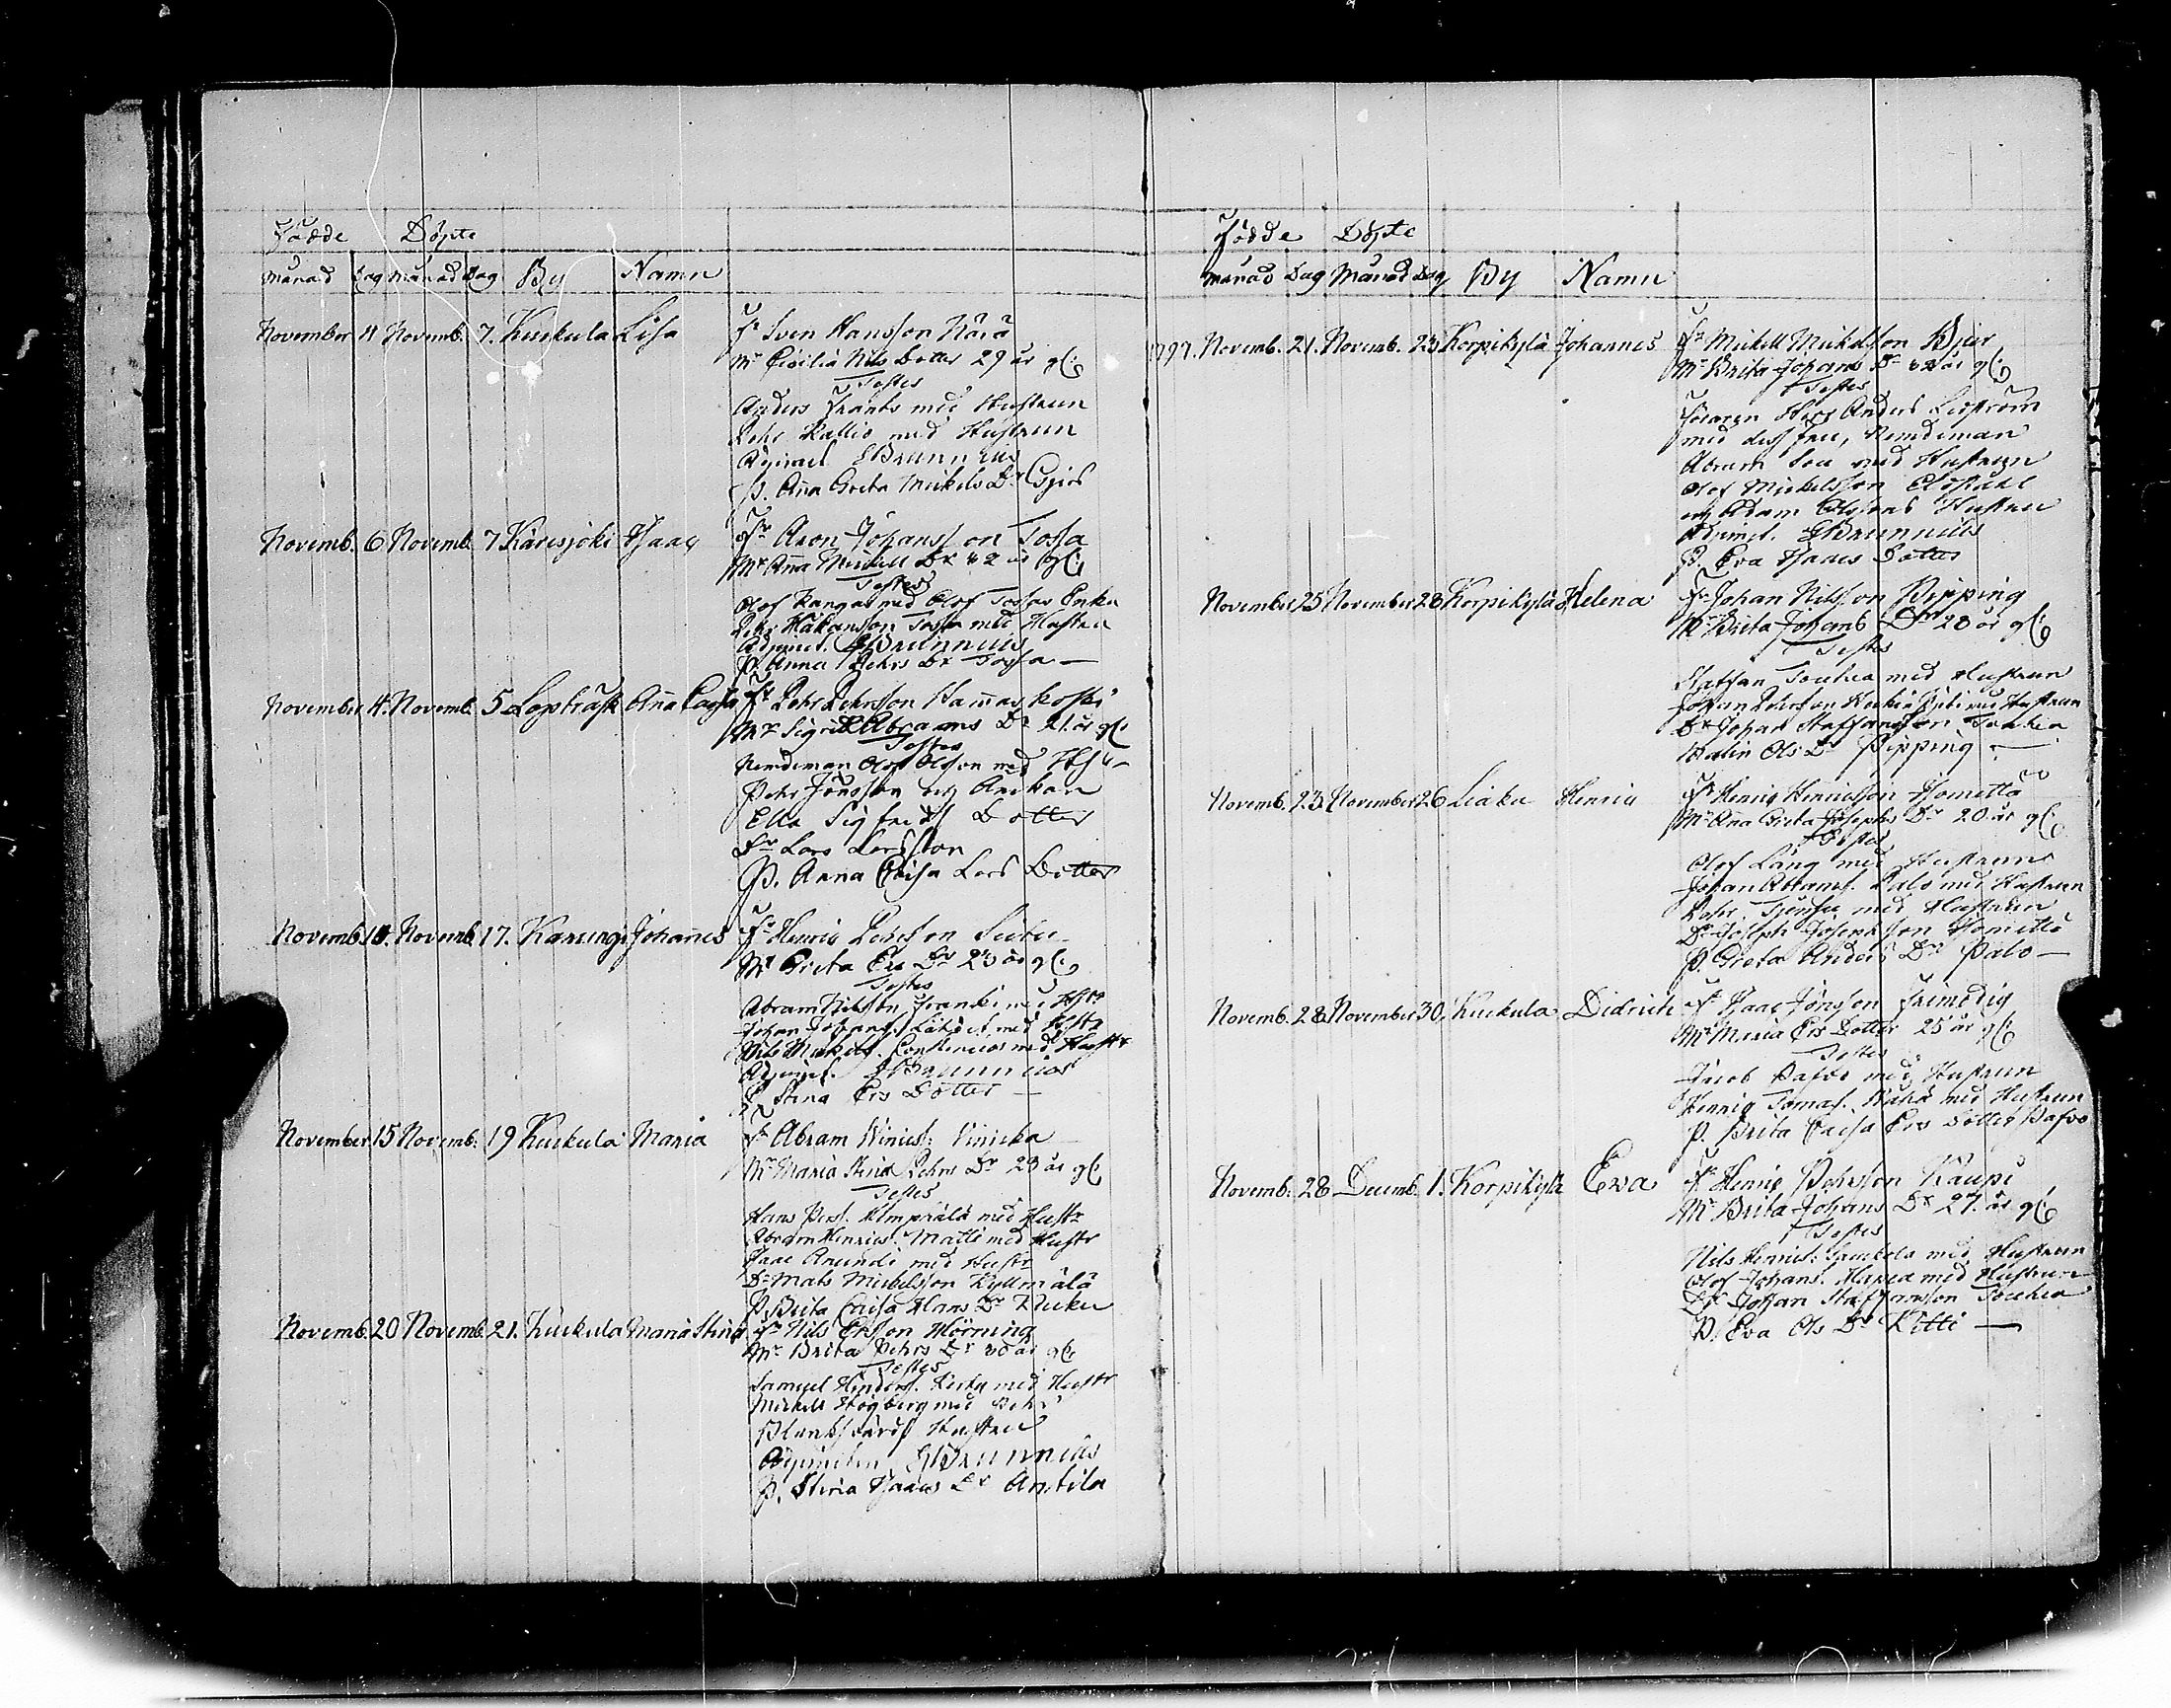 Födde Döpte
Månad Dag Månad Dag By Namn
November 4 Novemb. 7. Kuckula Lisa
Fr Sven Hansson Närä
Mr Cicilia Nils Dotter 29 år gl:
Testes
Anders Frants med Hustrun
Pehr Kallio med Hustrun
Adjunct. EBrunnius
P. Aña Greta Mickels Dr
Novemb. 6 Novemb. 7 Karesjoki Isaac
Fr Aron Johansson Tossa
Mr Aña Mickell Dr 32 år gl:
Testes
Olof Kangas med Olof Tossas Enka
Pehr Håkansson Tossa med Hustru
Adjunct. EBrunnius
P. Anna Pehrs Dr Tossa —
November 4. Novemb. 5 Lapträsk Aña Cajsa
Fr Pehr Pehrsson Ham̃askoski
Mr Sigrid Abraams Dr 21. år gl:
Testes
Nemdeman Olof Olsson med
Pehr Jönsson och Änkan
Ella Sigfrids Dotter
Dr Lars Larsson
P. Anna Cajsa Lars Dotter
Novemb. 14. Novemb. 17. Karungi Johan̄es
Fr Henric Pehrsson
Mr Greta Ers Dr 23 år gl:
Testes
Abram Nilsson Franki med Hustr
Johan Johans. med Hustr
Nils Mickels. med Hustr
Adjunct. EBrunnius
P. Stina Ers Dotter —
November 15 Novemb. 19 Kuckula Maria
Fr Abram Hinics: Vinicka
Mr Maria Stina Pehrs Dr 23 år gl:
Testes
Hans Pers. Kemprälä med Hustr
Abram Henrics. Matti med Hustr
Isac Anundi med Hustr
Dr Mats Mickelsson Kyllmälä
P. Brita Caisa Hans Dr
Novemb. 20 Novemb. 21. Kuckula Maria Stina
Fr Nils Ersson Hörning
Mr Brita Pehrs Dr 30 år gl:
Testes
Samuel med Hustr
Mickell Högberg med Pehr
Hustru
Adjuncten EBrunnius
P. Stina Isaacs Dr Antila
Födde Döpte
Månad Dag Månad Dag By Namn
1797. Novemb. 21. Novemb. 23 Korpikylä Johannes
Fr Mickell Mickelsson Bjur
Mr Brita Johans Dr 32 år gl:
Testes
Herr Anders Lidström
med dess fru, Nemdeman
Abram med Hustrun
Olof Mickelsson
och Adam Olssons Hustru
Adjunct. EBrunnius
P. Eva Isaacs Dotter
November 25 November 28 Korpikylä Helena
Fr Johan Nilsson Pipping
Mr Brita Johans Dr 28 år gl:
Testes
Staffan med Hustrun
Johan Pehrsson med Hustrun
Dr Johan Staffansson
Malin Ols Dr Pipping —
Novemb. 23. November 26 Liaka Henric
Fr Henric Henricsson Hometta
Mr Aña Greta Josephs Dr 20 år gl:
Testes
Olof Lång med Hustrun
Johan Abrams. Palo med Hustrun
Pehr med Hustrun
Dr Joseph Josephsson Hometta
P. Greta Anders Dr Palo —
Novemb. 28 November 30. Kuckula Didrich
Fr Isaac Jönsson Frimodig
Mr Maria Ers Dotter 25 år gl:
Testes
Jacob Pafvo med Hustrun
Henric Tomas. med Hustrun
P. Brita Caisa Ers Dotter Pafvo
Novemb. 28 Decemb. 1. Korpikylä Eva
Fr Henric Pehrsson Kaupi
Mr Brita Johans Dr 27. år gl:
Testes
Nils Henrics: med Hustrun
Olof Johans. Hapea med Hustrun
Dr Johan Staffansson
P. Eva Ols Dr Kitti —